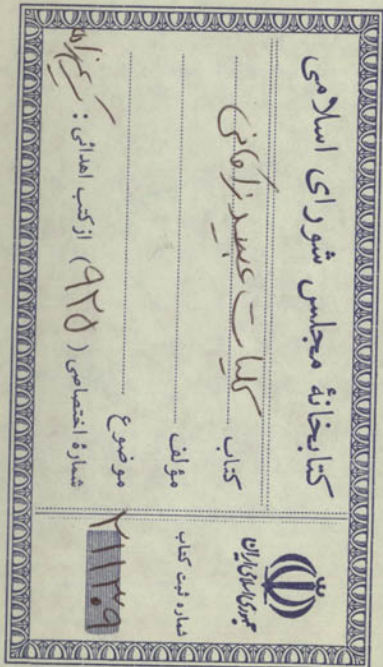 کتابخانهٔ مجلس شورای اسلامی
کتاب کلیات عبید زاکانی
مؤلف
موضوع
شمارهٔ اختصاصی ( ۹۲۵ ) از کتب اهدائی :
جمهوری اسلامی ایران
شماره ثبت کتاب
۲۱۱۳۰۹